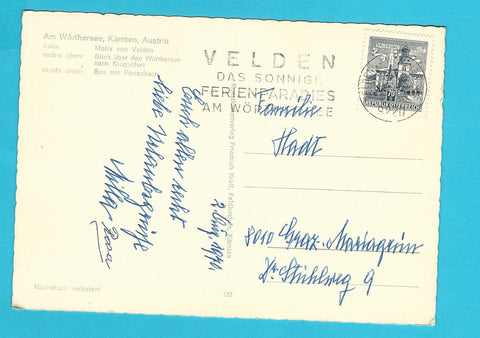 Am Wörthersee, Kärnten, Austria
links: Motiv von Velden
rechts oben: Blick über den Wörthersee
nach Klagenfurt
rechts unten: See mit Pörtschach
VELDEN
DAS SONNIGE
FERIENPARADIES
AM WÖRTHERSEE
REPUBLIK ÖSTERREICH
9220
Euch allen recht
liebe Urlaubsgrüße
2. Aug. 1971
Familie
Hadt
8010 Graz-Mariagrün
Dr. Stühlweg 9
Friedrich Kroll, Feldkirchen, Kärnten
Nachdruck verboten!
132